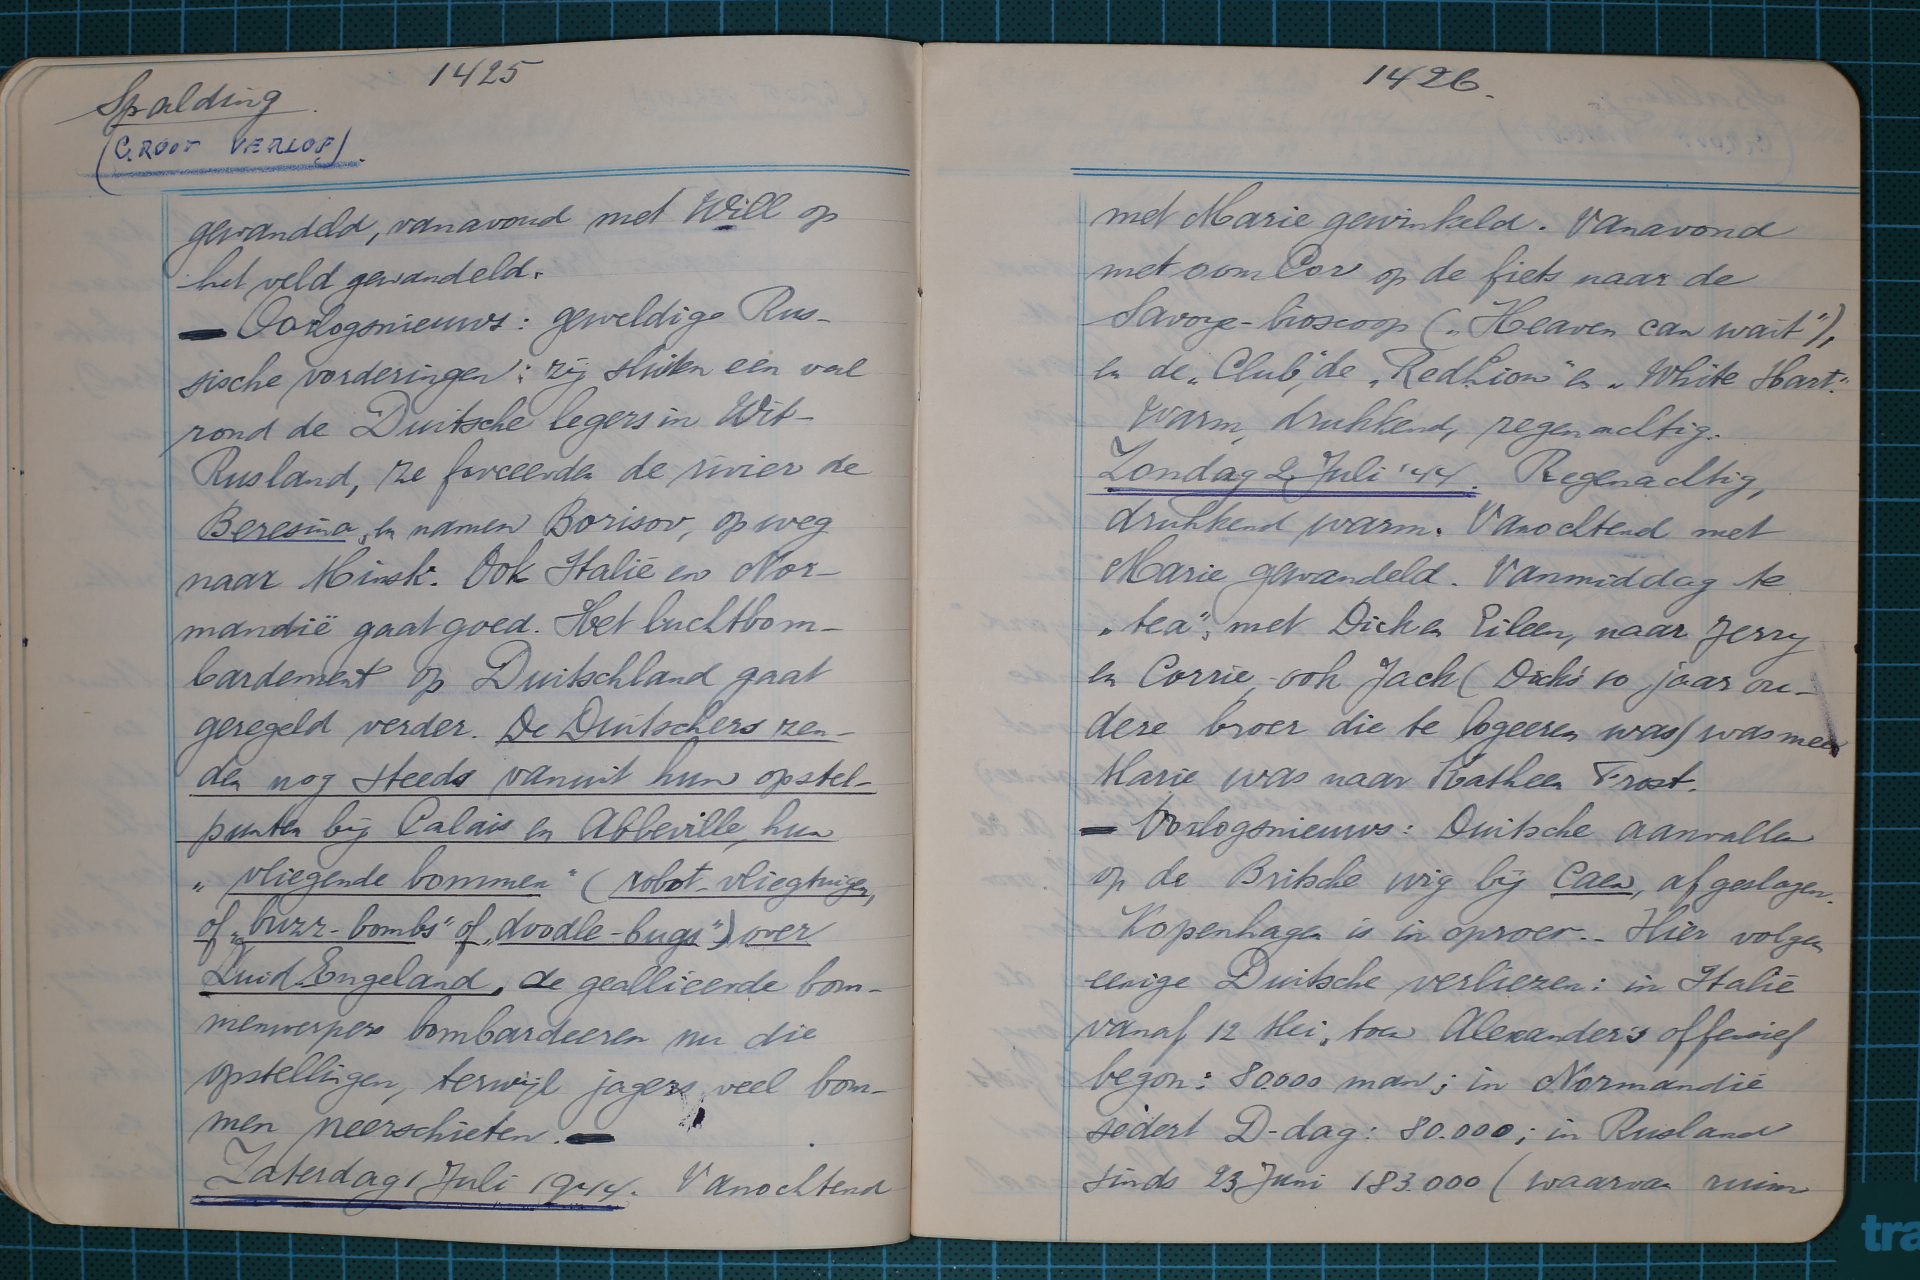 1425
Spalding
(GROOT VERLOF)
gewandeld, vanavond met Will op
het veld gewandeld.
Oorlogsnieuws: geweldige Rus-
sische vorderingen: zij sluiten een val
rond de Duitsche legers in Wit-
Rusland, ze forceerden de rivier de
Beresina, en namen Borisov, op weg
naar Minsk. Ook Italië en Nor-
mandië gaat goed. Het luchtbom-
bardement op Duitschland gaat
geregeld verder. De Duitschers zen-
den nog steeds vanuit hun opstel-
punten bij Calais en Abbeville, hun
„vliegende bommen" (robot-vliegtuigen,
of „buzz-bombs" of „doodle-bugs") over
Zuid-Engeland, de geallieerde bom-
menwerpers bombardeeren nu die
opstellingen, terwijl jagers veel bom-
men neerschieten.
Zaterdag 1 Juli 1944. Vanochtend
1426.
met Marie gewinkeld. Vanavond
met oom Cor op de fiets naar de
Savoye-bioscoop („Heaven can wait"),
en de „Club", de „Red Lion" en „White Hart."
Warm, drukkend, regenachtig.
Zondag 2 Juli '44. Regenachtig,
drukkend warm. Vanochtend met
Marie gewandeld. Vanmiddag te
„tea", met Dick en Eileen, naar Jerry
en Corrie, ook Jack (Dick's 10 jaar ou-
dere broer die te logeeren was) was mee
Marie was naar Kathleen Frost.
Oorlogsnieuws: Duitsche aanvallen
op de Britsche wig bij Caen, afgeslagen.
Kopenhagen is in oproer.. Hier volgen
eenige Duitsche verliezen: in Italië
vanaf 12 Mei, toen Alexander's offensief
begon: 80.000 man; in Normandië
sedert D-dag: 80.000; in Rusland
sinds 23 Juni 183.000 (waarvan ruim
tra